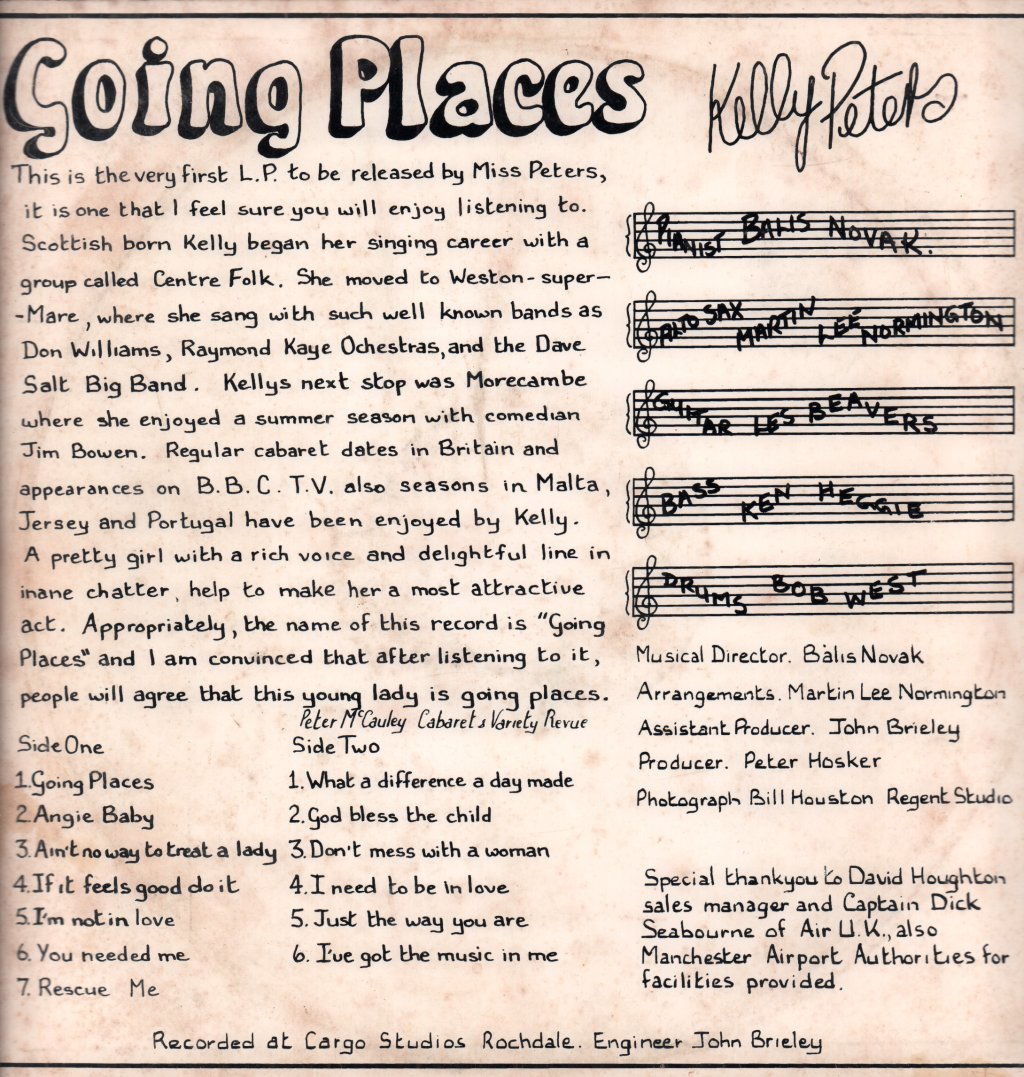 Going Places
Kelly Peters
This is the very first L.P. to be released by Miss Peters,
it is one that I feel sure you will enjoy listening to.
Scottish born Kelly began her singing career with a
group called Centre Folk. She moved to Weston-super-
-Mare, where she sang with such well known bands as
Don Williams, Raymond Kaye Ochestras, and the Dave
Salt Big Band. Kellys next stop was Morecambe
where she enjoyed a summer season with comedian
Jim Bowen. Regular cabaret dates in Britain and
appearances on B.B.C. T.V. also seasons in Malta,
Jersey and Portugal have been enjoyed by Kelly.
A pretty girl with a rich voice and delightful line in
inane chatter, help to make her a most attractive
act. Appropriately, the name of this record is "Going
Places" and I am convinced that after listening to it,
people will agree that this young lady is going places.
Peter McCauley Cabarets Variety Revue
Side One
1. Going Places
2. Angie Baby
3. Ain't no way to treat a lady
4. If it feels good do it
5. I'm not in love
6. You needed me
7. Rescue Me
Side Two
1. What a difference a day made
2. God bless the child
3. Don't mess with a woman
4. I need to be in love
5. Just the way you are
6. I've got the music in me
PIANIST BALIS NOVAK.
ALTO SAX MARTIN LEE NORMINGTON
GUITAR LES BEAVERS
BASS KEN HEGGIE
DRUMS BOB WEST
Musical Director. Balis Novak
Arrangements. Martin Lee Normington
Assistant Producer. John Brieley
Producer. Peter Hosker
Photograph Bill Houston Regent Studio
Special thankyou to David Houghton
sales manager and Captain Dick
Seabourne of Air U.K., also
Manchester Airport Authorities for
facilities provided.
Recorded at Cargo Studios Rochdale. Engineer John Brieley